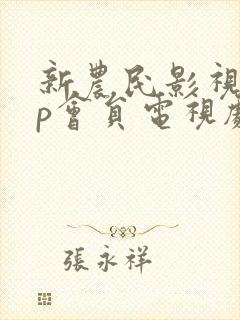 新農民影視
p會員電視劇
張永祥